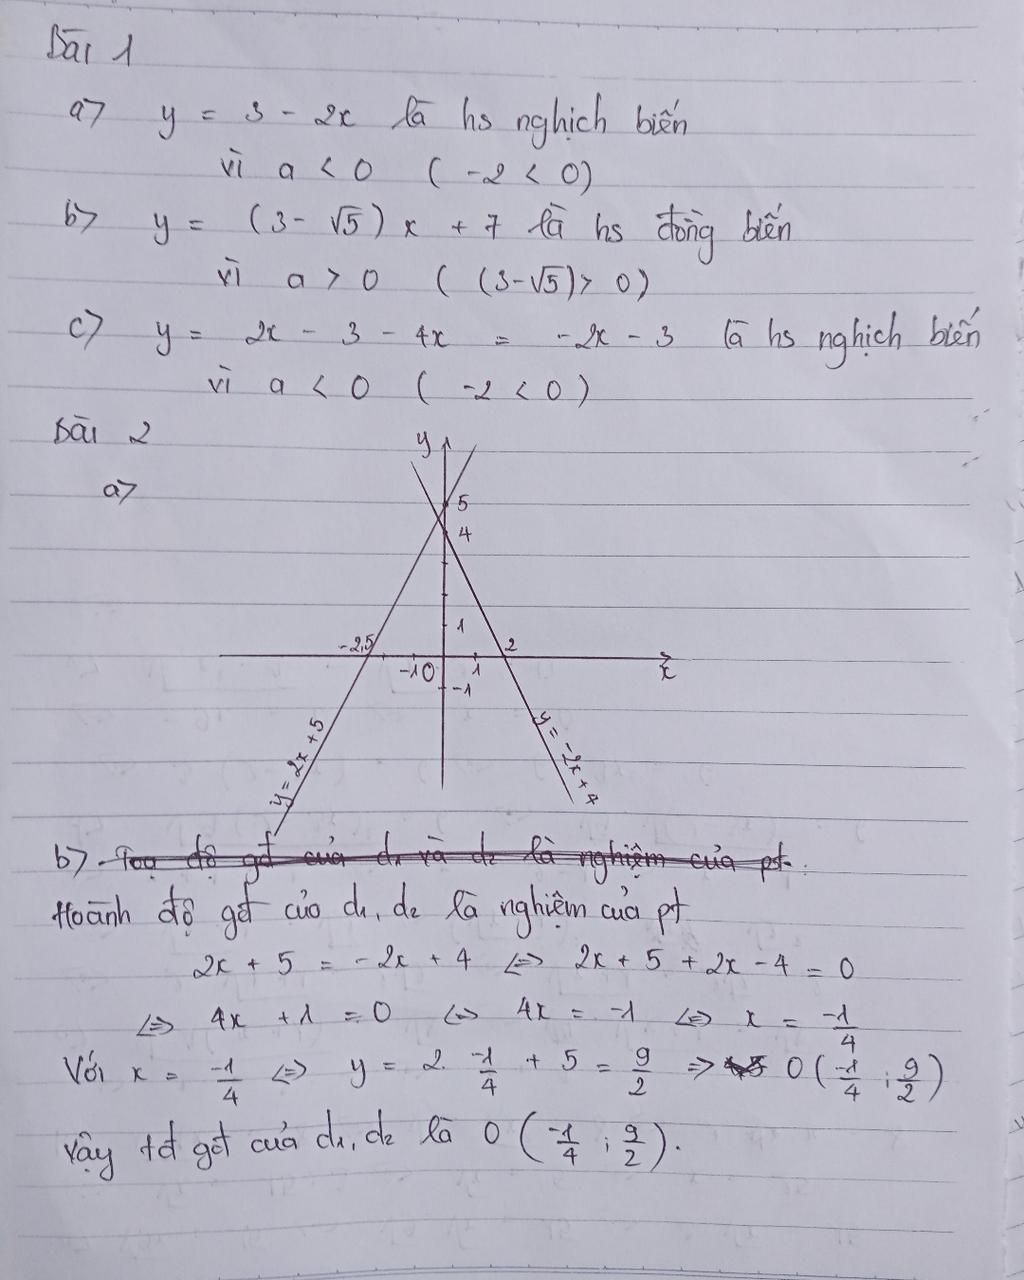 Bài 1
a> y = 3 - 2x là hs nghịch biến
vì a < 0 ( -2 < 0)
b> y = (3 - √5) x + 7 là hs đồng biến
vì a > 0 ( (3-√5)> 0)
c> y = 2x - 3 - 4x = -2x - 3 là hs nghịch biến
vì a < 0 ( -2 < 0 )
Bài 2
a>
y
5
4
1
-2,5
2
-1 0 1
x
-1
y = 2x + 5
y = -2x + 4
b> Toạ độ gđ của d₁ và d₂ là nghiệm của pt
Hoành độ gđ của d₁, d₂ là nghiệm của pt
2x + 5 = -2x + 4 <=> 2x + 5 + 2x - 4 = 0
<=> 4x + 1 = 0 <=> 4x = -1 <=> x = -1/4
Với x = -1/4 <=> y = 2. -1/4 + 5 = 9/2 => 0 ( -1/4 ; 9/2 )
vậy tđ gđ của d₁, d₂ là 0 ( -1/4 ; 9/2 ).